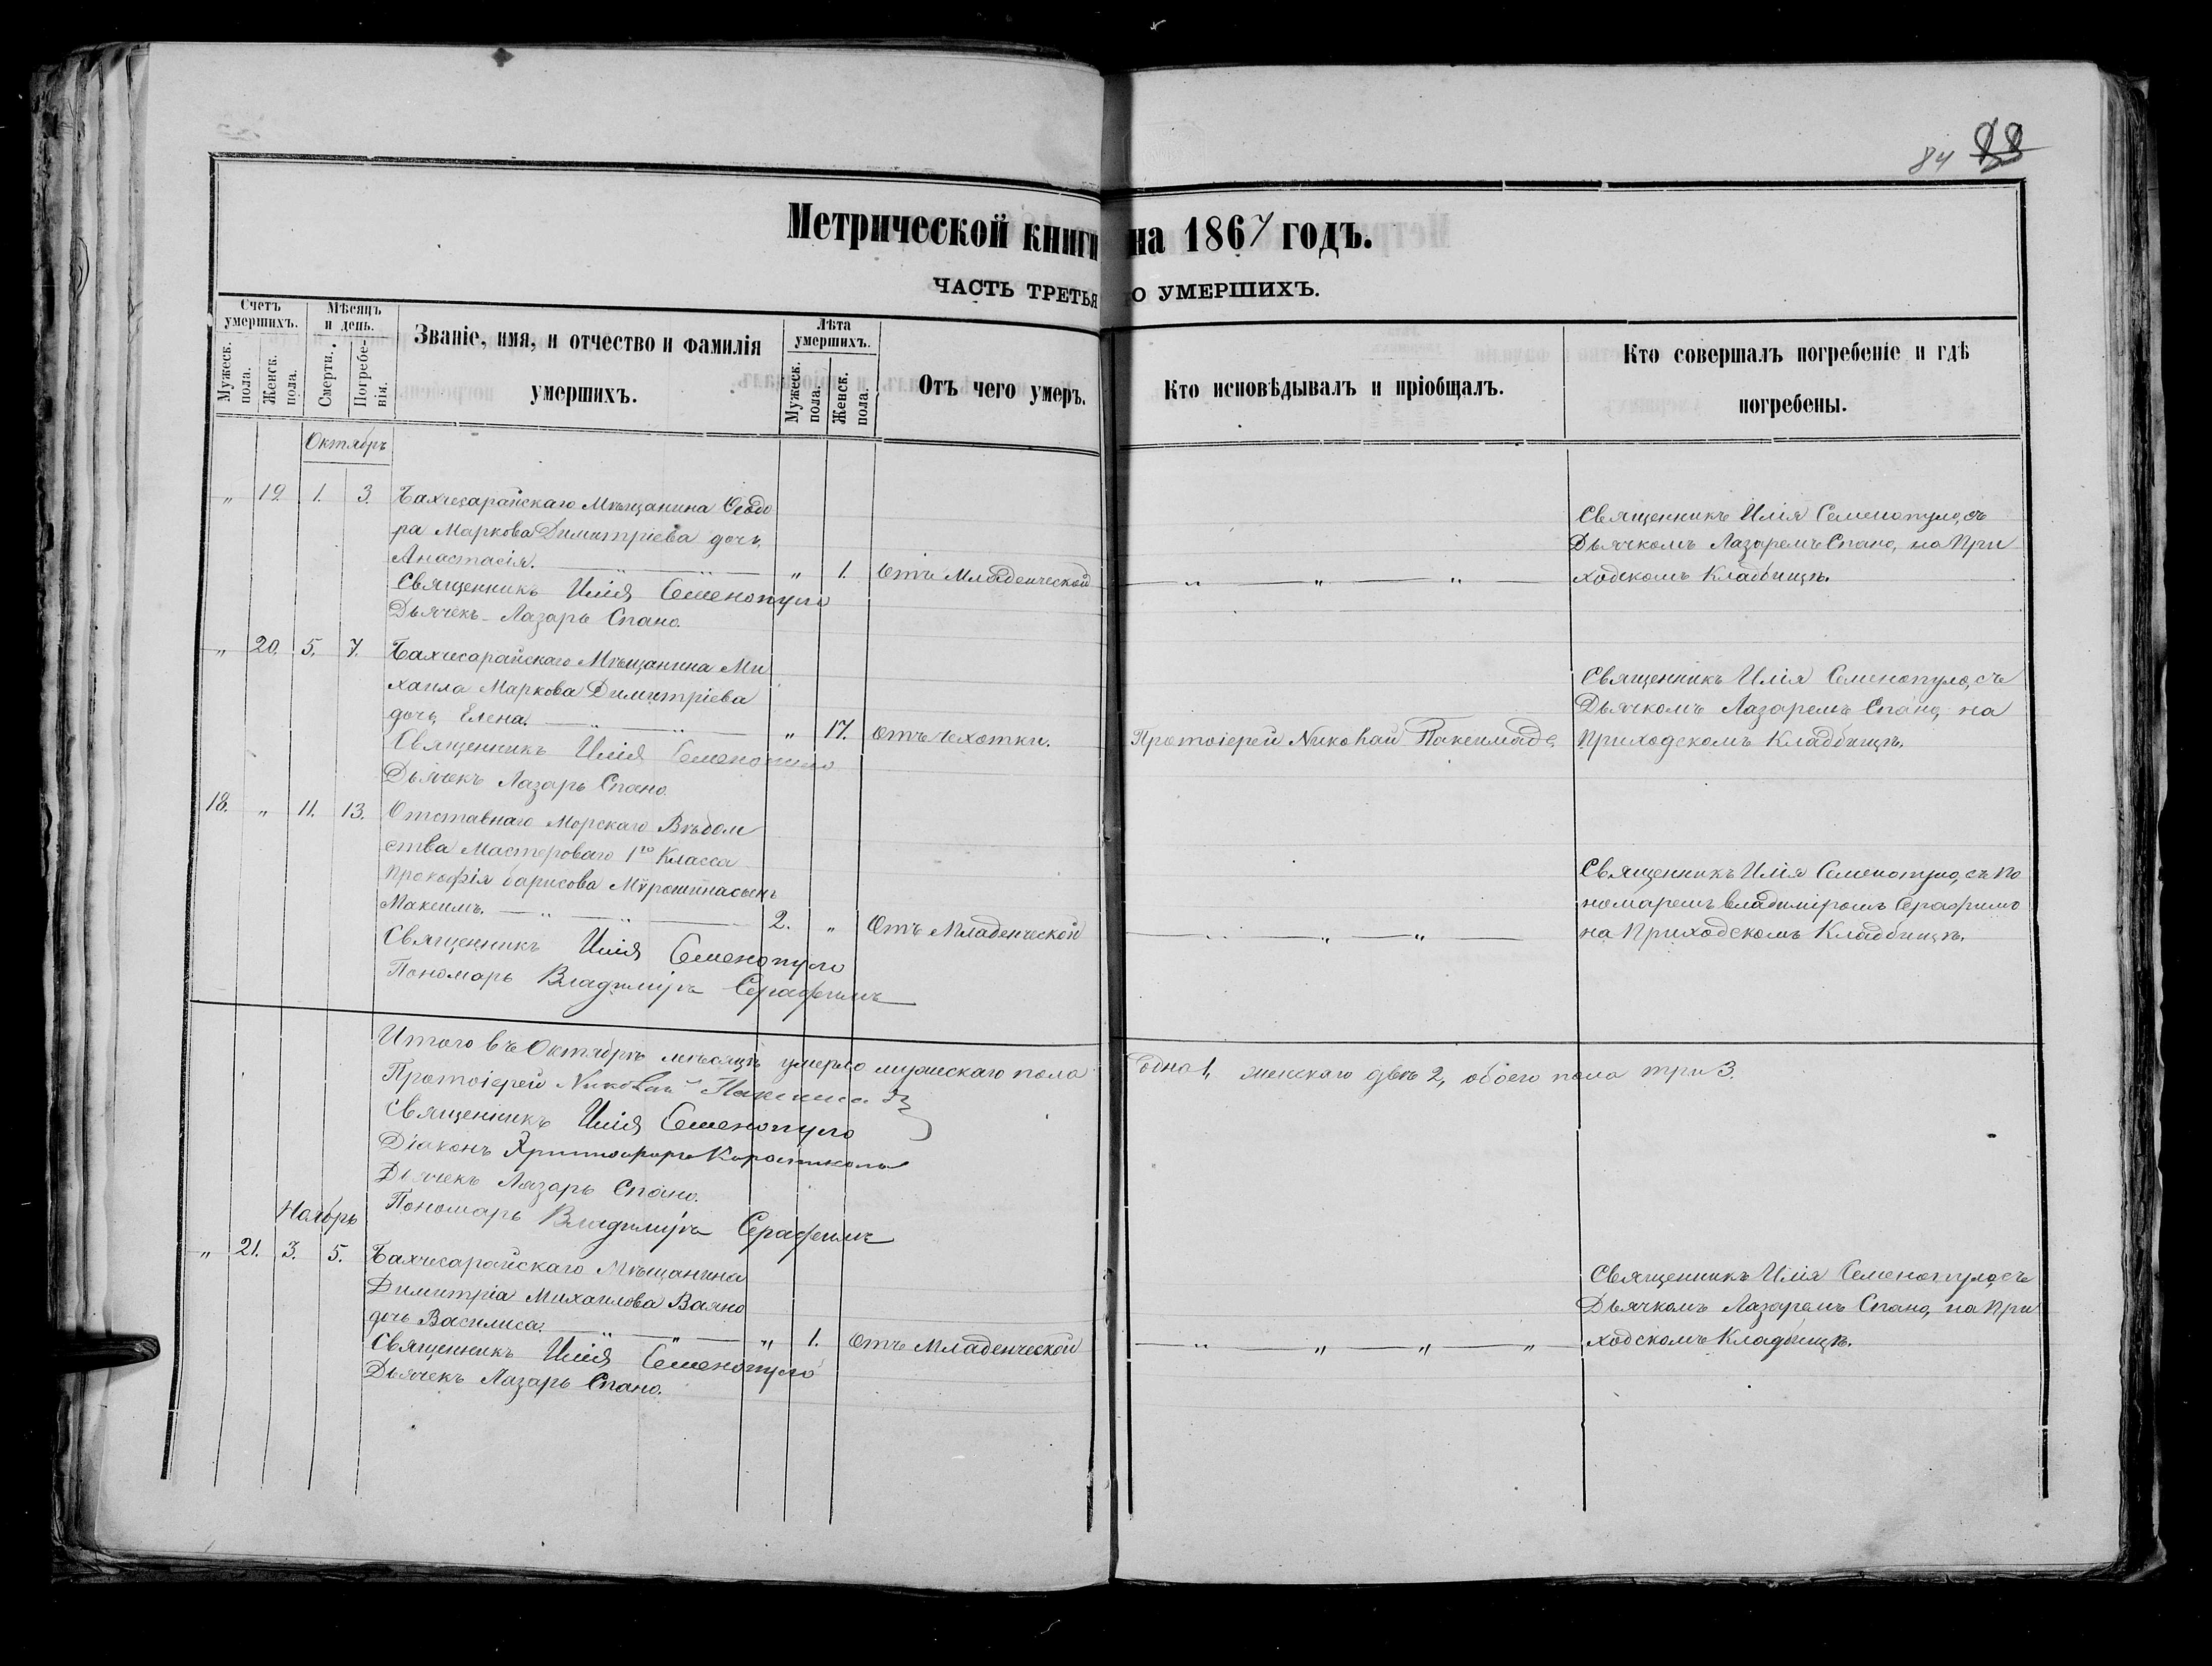 84 88
Метрической книги на 1867 годъ.
ЧАСТЬ ТРЕТЬЯ О УМЕРШИХЪ.
Счетъ умершихъ.
Мужеск. пола.
Женск. пола.
Мѣсяцъ и день.
Смерти.
Погребенія.
Званіе, имя, и отчество и фамилія
умершихъ.
Лѣта умершихъ.
Мужеск. пола.
Женск. пола.
Отъ чего умеръ.
Кто исповѣдывалъ и пріобщалъ.
Кто совершалъ погребеніе и гдѣ
погребены.
Октябрь
„ 19. 1. 3. Бахчисарайскаго Мѣщанина Ѳеодо
ра Маркова Димитріева дочь,
Анастасія. „ 1. Отъ Младенческой
Священникъ Илія Семенопуло
Дьячекъ Лазарь Спано.
Священникъ Илія Семенопуло, съ
Дьячкомъ Лазаремъ Спано, на При
ходскомъ Кладбищѣ.
„ 20. 5. 7. Бахчисарайскаго Мѣщанина Ми
хаила Маркова Димитріева
дочь, Елена. „ 17. Отъ чехотки.
Священникъ Илія Семенопуло
Дьячекъ Лазарь Спано.
Протоіерей Николай
Священникъ Илія Семенопуло, съ
Дьячкомъ Лазаремъ Спано, на
Приходскомъ Кладбищѣ.
18. „ 11. 13. Отставнаго Морскаго Вѣдом
ства Мастероваго 1го Класса
Прокофія Барисова сынъ
Максимъ. 2. „ Отъ Младенческой
Священникъ Илія Семенопуло
Пономарь Владимиръ Серафимъ
Священникъ Илія Семенопуло, съ По
номаремъ Владиміромъ Серафимъ
на Приходскомъ Кладбищѣ.
Итого въ Октябрѣ мѣсяцѣ умерло мужескаго пола одно 1, женскаго двѣ 2, обоего пола три 3.
Протоіерей Николай
Священникъ Илія Семенопуло
Діаконъ Христофоръ
Дьячекъ Лазарь Спано.
Пономарь Владимиръ Серафимъ
Ноябрь
„ 21. 3. 5. Бахчисарайскаго Мѣщанина
Димитрія Михаилова Ваяно
дочь Василиса. „ 1. Отъ Младенческой
Священникъ Илія Семенопуло
Дьячекъ Лазарь Спано.
Священникъ Илія Семенопуло, съ
Дьячкомъ Лазаремъ Спано, на При
ходскомъ Кладбищѣ.